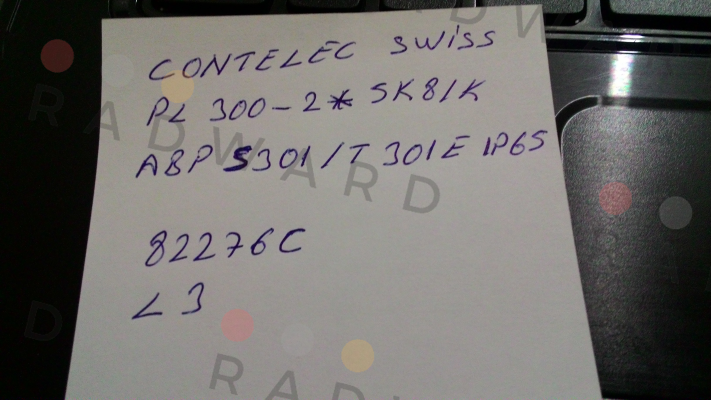 CONTELEC SWiSS
PL 300-2* 5K81K
ABP S301/T301E IP65
82276C
L3
RADWARD
RADW
RADW